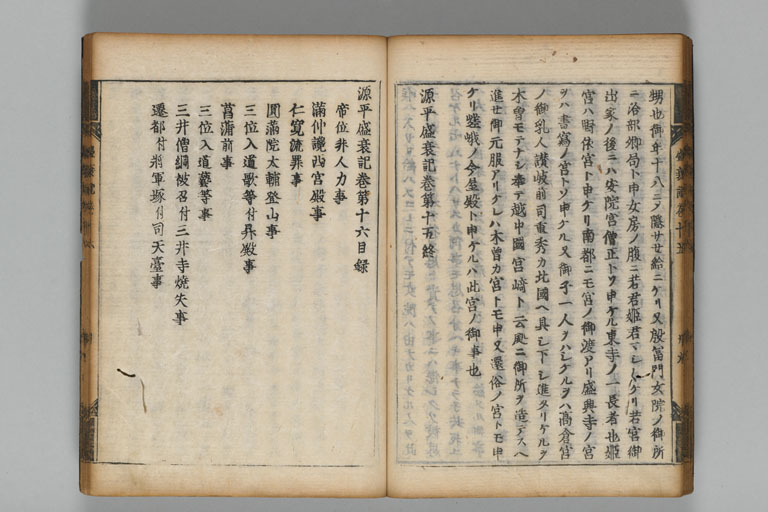 甥也御年十八ニソ隠サセ給ニケリ又殷冨門女院ノ御所
ニ治部卿局ト申女房ノ腹ニ若君姫君マシ〳〵ケリ若宮御
出家ノ後ニハ安院宮僧正トソ申ケル東寺ノ一長者也姫
宮ハ野依宮ト申ケリ南都ニモ宮ノ御渡アリ盛興寺ノ宮
ヲハ書寫ノ宮トソ申ケル又御子一人ヲハシケルヲハ高倉宮
ノ御乳人讃岐前司重秀カ北國ヘ具シ下シ進タリケルヲ
木曽モテナシ奉テ越中國宮﨑ト云処ニ御所ヲ造テスヘ
進セ御元服アリケレハ木曽カ宮トモ申又還俗ノ宮トモ申
ケリ嵯峨ノ今屋殿ト申ケルハ此宮ノ御事也
源平盛衰記巻第十五終
源平盛衰記巻第十六目録
帝位非人力事
滿仲讒西宮殿事
仁寛流罪事
圓滿院大輔登山事
三位入道歌等付昇殿事
菖蒲前事
三位入道藝等事
三井僧綱被召付三井寺焼失事
遷都付將軍塚付司天臺事